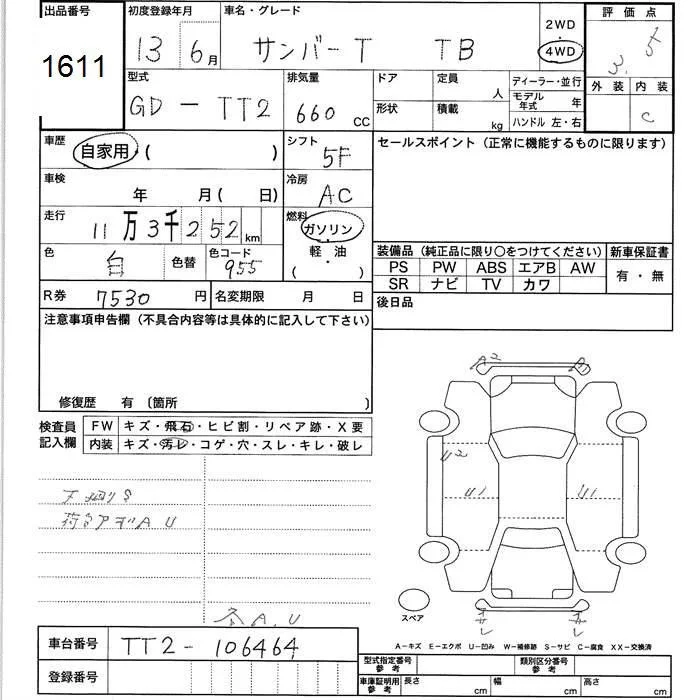 出品番号 初度登録年月 車名・グレード 2WD 評価点
1611 13 6月 サンバーT TB 4WD 3.5
型式 排気量 ドア 定員 人 ディーラー・並行 外装 内装
GD - TT2 660 CC 形状 積載 kg モデル年式 年 C
ハンドル 左・右
車歴 自家用・( ) シフト 5F セールスポイント (正常に機能するものに限ります)
車検 年 月 ( 日) 冷房 AC
走行 11万3千252 km 燃料 ガソリン
軽・油
( )
色 白 色替 色コード 955
装備品 (純正品に限り〇をつけてください) 新車保証書
PS PW ABS エアB AW 有・無
SR ナビ TV カワ
R券 7530 円 名変期限 月 日 後日品
注意事項申告欄 (不具合内容等は具体的に記入して下さい)
修復歴 有 〔箇所 〕
検査員記入欄 FW キズ・飛石・ヒビ割・リペア跡・X要
内装 キズ・汚レ・コゲ・穴・スレ・キレ・破レ
A2
U2 U1 U1
S
A U
A.U
スペア
A−キズ E−エクボ U−凹み W−補修跡 S−サビ C−腐食 XX−交換済
車台番号 TT2 - 106464
登録番号
型式指定番号 参考 類別区分番号 参考
車庫証明用 参考 長さ cm 幅 cm 高さ cm